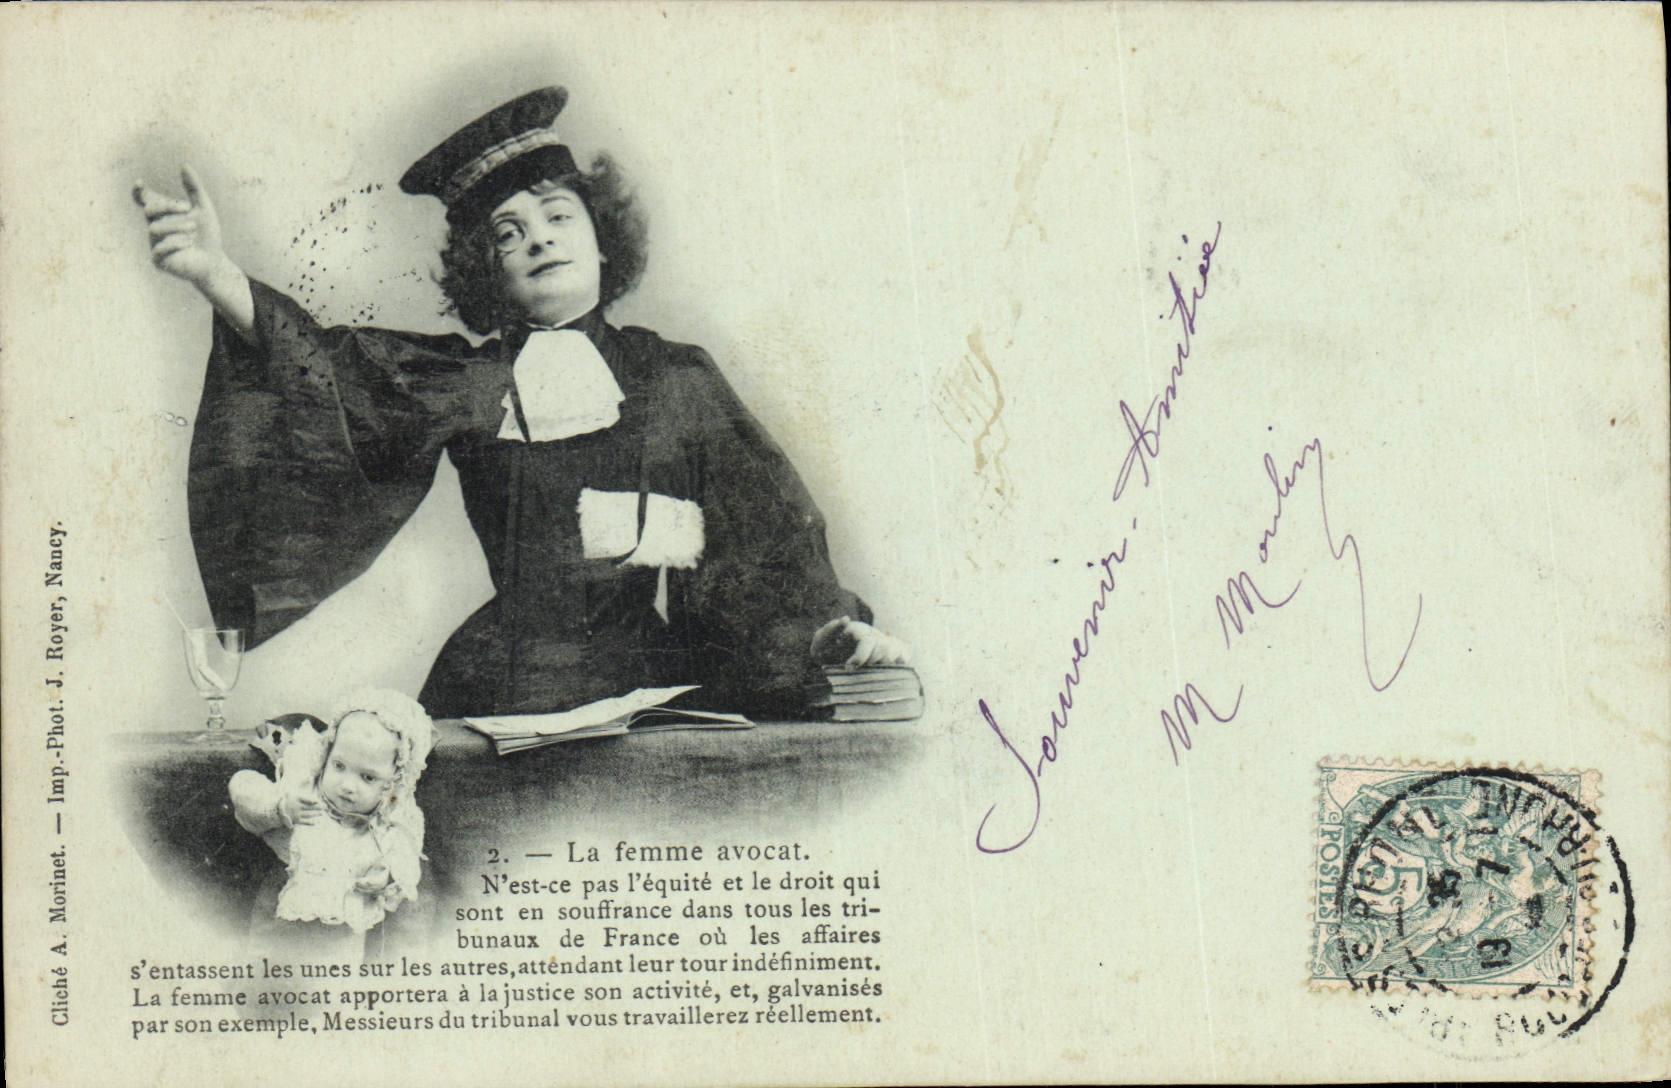 2. — La femme avocat.
N'est-ce pas l'équité et le droit qui
sont en souffrance dans tous les tri-
bunaux de France où les affaires
s'entassent les unes sur les autres, attendant leur tour indéfiniment.
La femme avocat apportera à la justice son activité, et, galvanisés
par son exemple, Messieurs du tribunal vous travaillerez réellement.
Cliché A. Morinet. — Imp.-Phot. J. Royer, Nancy.
Souvenir - Amitiée
M Moulin
POSTES
5
RHONE